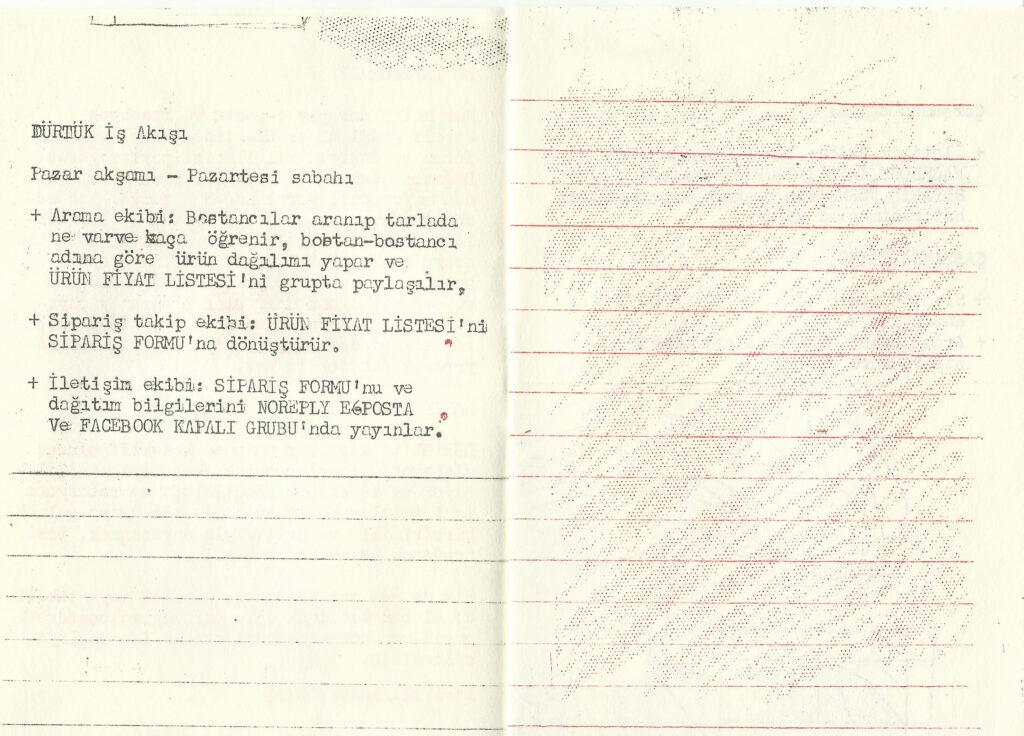 DÜRTÜK İş Akışı
Pazar akşamı - Pazartesi sabahı
+ Arama ekibi: Bostancılar aranıp tarlada
ne varve kaça öğrenir, bostan-bostancı
adına göre ürün dağılımı yapar ve
ÜRÜN FİYAT LİSTESİ'ni grupta paylaşılır,
+ Sipariş takip ekibi: ÜRÜN FİYAT LİSTESİ'ni
SİPARİŞ FORMU'na dönüştürür.
+ İletişim ekibi: SİPARİŞ FORMU'nu ve
dağıtım bilgilerini NOREPLY E6POSTA
Ve FACEBOOK KAPALI GRUBU'nda yayınlar.